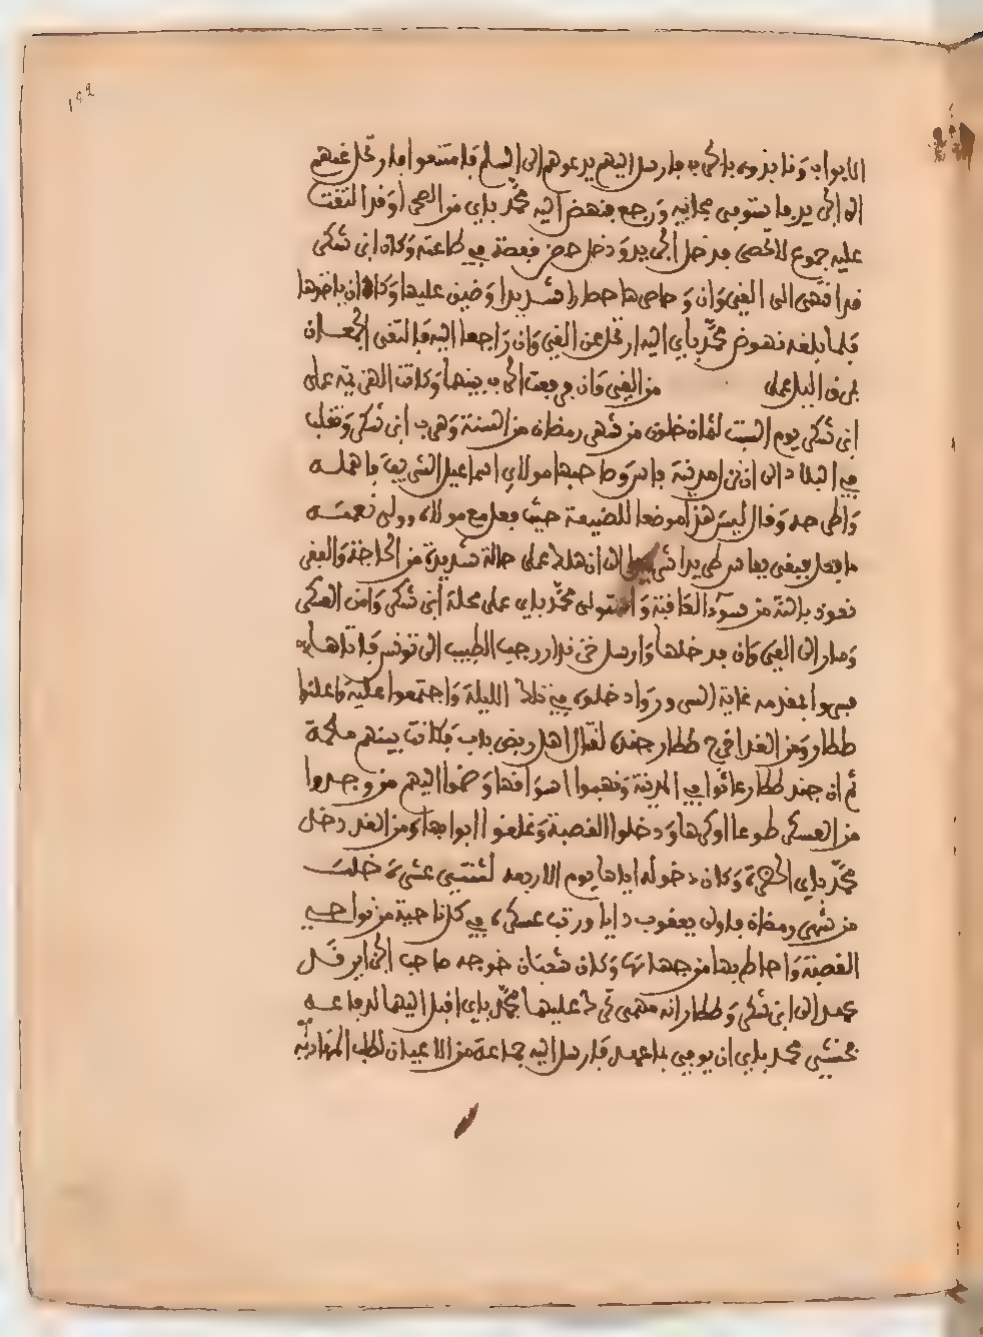 ١٤٢
الابواب وقابذوه بالحرب فارسل اليهم يدعوهم الى السلم فامتنعوا فارتحل عنهم
الى الجريد فاستوفى مجابيه ورجع فنهض اليه محمد باي من الصحرا وقد التفت
عليه جموع لا تحصى فدخل الجريد ودخل حضر قفصة في طاعته وكان ابن شكر
قد انتهى الى القيروان وحاصرها حصارا شديدا وضيق عليها وكاد ان ياخذها
فلما بلغه نهوض محمد باي اليه ارتحل عن القيروان راجعا اليه فالتقى الجمعان
بمرق الليل على من القيروان فوقعت الحرب بينهما وكانت الهزيمة على
ابن شكر يوم السبت لثمان خلون من شهر رمضان من السنة وهرب ابن شكر وتقلب
في البلاد الى ان نزل مدينة فاس وصاحبها مولاي اسماعيل الشريف فاهمله
واطرحه وقال ليس هذا موضعا للصنيعة حيث فعل مع مولاه وولي نعمته
ما فعل فبقي بفاس طريدا الى ان هلك على حالة شديدة من الحاجة والفقر
نعوذ بالله من سوء العاقبة واستولى محمد باي على محلة ابن شكر وامن العسكر
وصار الى القيروان فدخلها وارسل رجب الطبيب الى تونس فاتاها
فسروا بمقدمه غاية السرور وادخلوه في تلك الليلة واجتمعوا عليه
ططار ومن الغد اخرج ططار جنده لقتال اهل ربض باب فكانت بينهم ملحمة
ثم ان جند ططار عاثوا في المدينة ونهبوا اسواقها وضموا اليهم من وجدوا
من العسكر طوعا او كرها ودخلوا القصبة وغلقوا ابوابها ومن الغد دخل
محمد باي الحضرة وكان دخوله اياها يوم الاربعه لثنتي عشرة خلت
من شهر رمضان فاولى يعقوب دايا ورتب عسكره في كل ناحية من نواحي
القصبة واحاط بها من جهاتها وكان شعبان خوجه صاحب الجزاير قد
عهد الى ابن شكر وططار انه مهمى تحرك عليهما محمد باي اقبل اليهما لدفاعه
فخشي محمد باي ان يوفي بما عهد فارسل اليه جماعة من الاعيان لطلب المهادنة